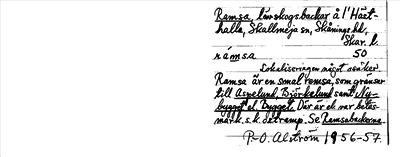 Ramsa, lövskogsbackar å l' Häst-
halla, Skallmeja sn, Skånings hd,
Skar. l.
rámsa 50
Lokaliseringen något osäker.
Ramsa är en smal remsa, som gränser
till Aspelund, Björkelund samt Ny-
bygget el. Bygget. Där är ek var betes-
mark s.k. östramp. Se Ramsabackarna
P-O. Alström 1956-57.